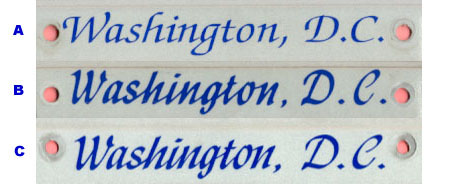 A Washington, D.C.
B Washington, D.C.
C Washington, D.C.